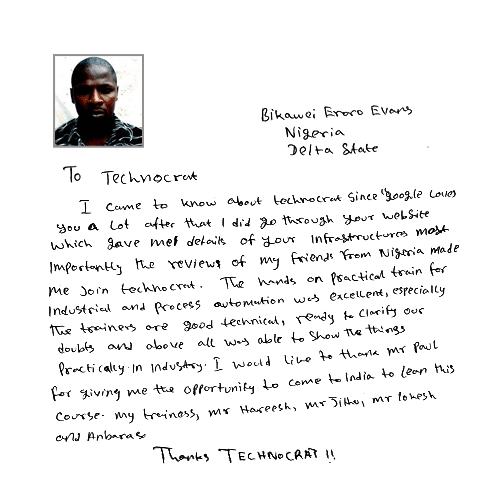 Bikawei Eroro Evans
Nigeria
Delta State
To Technocrat
I came to know about technocrat since "google Loves
you a Lot after that I did go through your website
which gave met details of your Infrastructures most
Importantly the reviews of my friends from Nigeria made
me Join technocrat. The hands on Practical train for
Industrial and Process automation was excellent, especially
the trainers are good technical, ready to clarify our
doubts and above all was able to show the things
Practically in Industry. I would like to thank Mr Paul
for giving me the opportunity to come to India to lean this
course. my treiness, mr Hareesh, mr Jithu, mr lokesh
and Anbarase
Thanks TECHNOCRAT !!